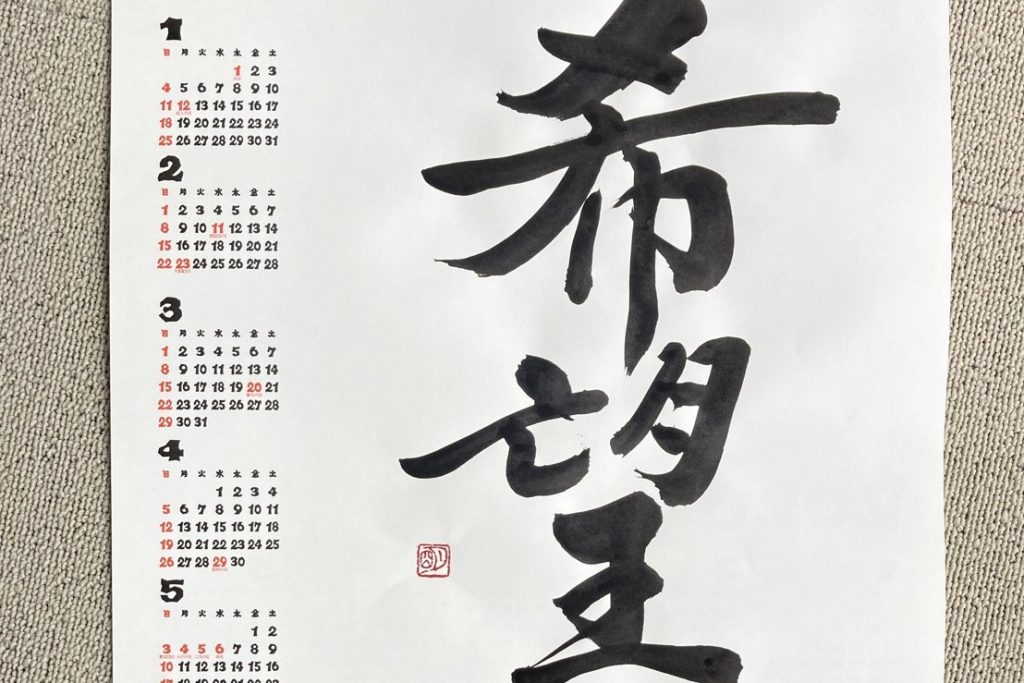 希望
1
日 月 火 水 木 金 土
1 2 3
4 5 6 7 8 9 10
11 12 13 14 15 16 17
18 19 20 21 22 23 24
25 26 27 28 29 30 31
2
日 月 火 水 木 金 土
1 2 3 4 5 6 7
8 9 10 11 12 13 14
15 16 17 18 19 20 21
22 23 24 25 26 27 28
3
日 月 火 水 木 金 土
1 2 3 4 5 6 7
8 9 10 11 12 13 14
15 16 17 18 19 20 21
22 23 24 25 26 27 28
29 30 31
4
日 月 火 水 木 金 土
1 2 3 4
5 6 7 8 9 10 11
12 13 14 15 16 17 18
19 20 21 22 23 24 25
26 27 28 29 30
5
日 月 火 水 木 金 土
1 2
3 4 5 6 7 8 9
10 11 12 13 14 15 16